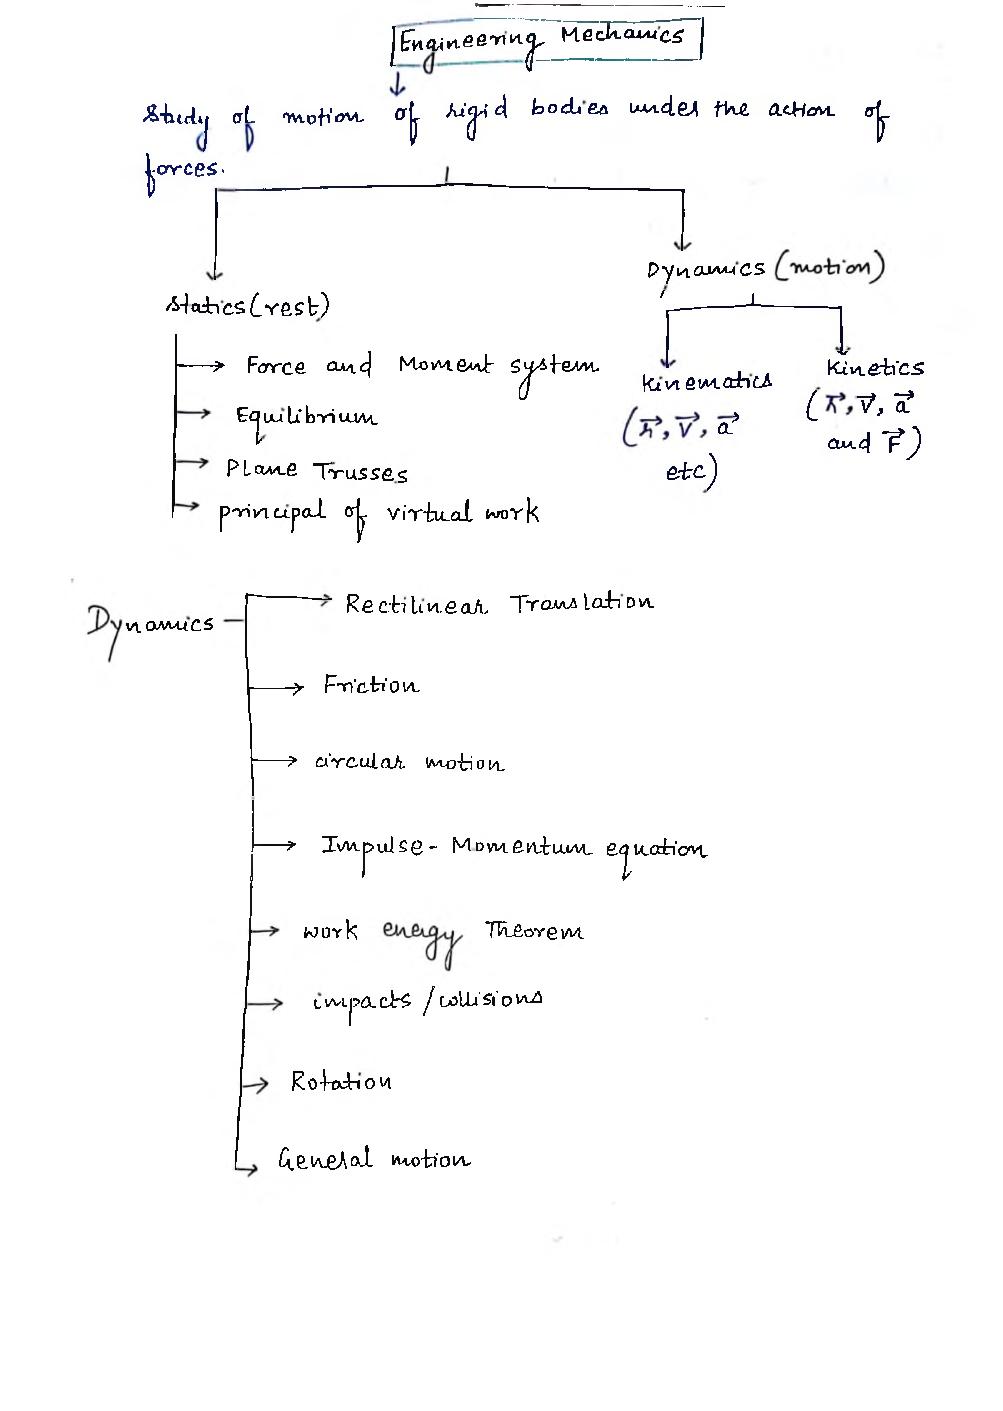 Engineering Mechanics
Study of motion of rigid bodies under the action of
forces.
Dynamics (motion)
Statics (rest)
Force and Moment system
Equilibrium
Plane Trusses
principal of virtual work
Kinematics
(r⃗, v⃗, a⃗
etc)
Kinetics
(r⃗, v⃗, a⃗
and F⃗)
Dynamics
Rectilinear Translation
Friction
circular motion
Impulse - Momentum equation
work energy Theorem
impacts / collisions
Rotation
General motion